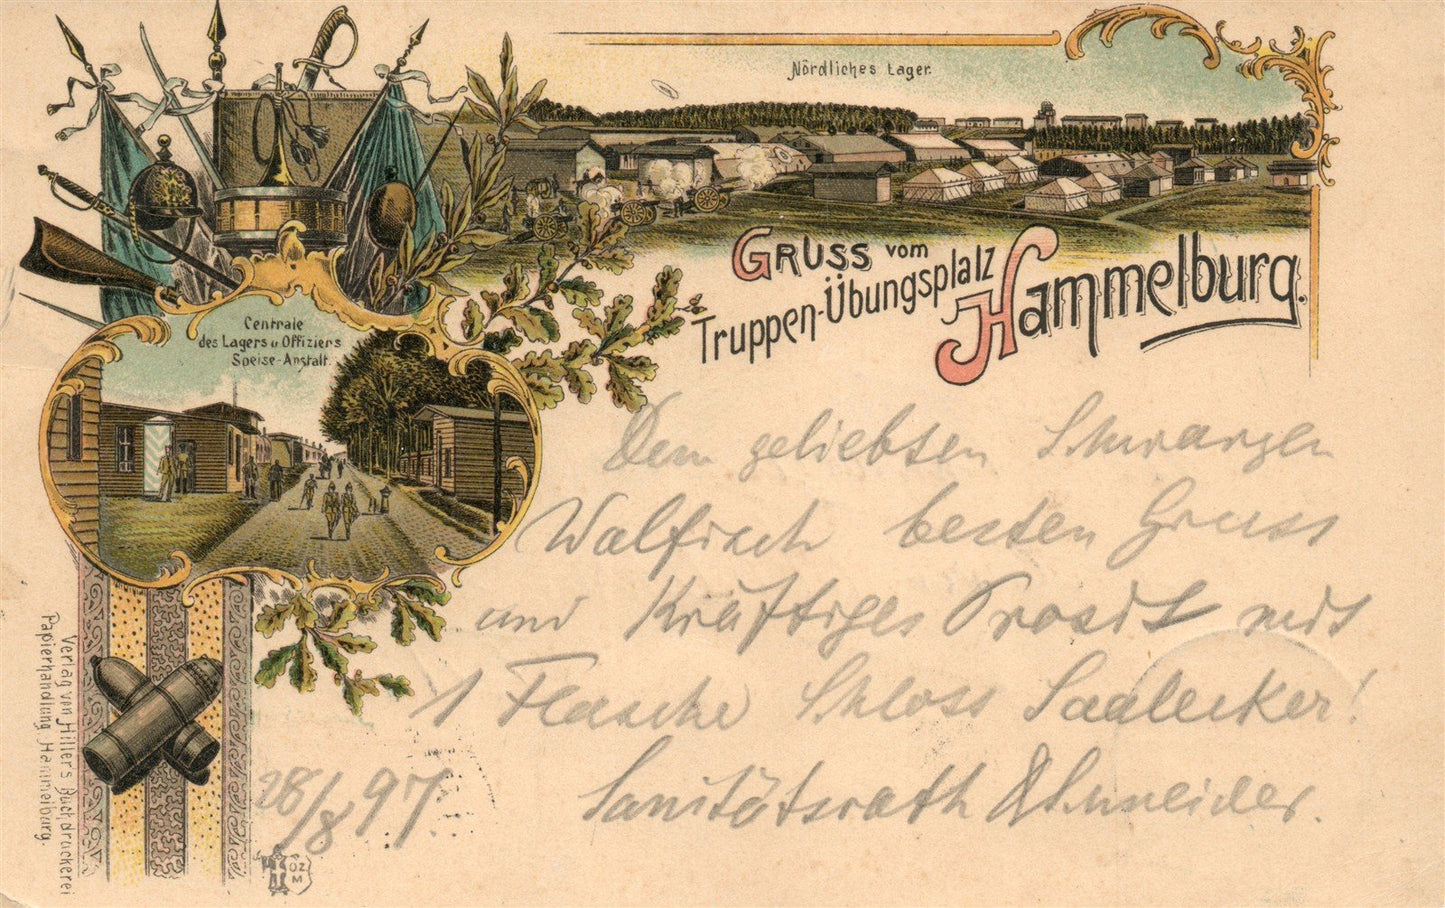 Nördliches Lager.
Gruss vom
Truppen-Übungsplatz
Hammelburg.
Centrale
des Lagers u Offiziers
Speise-Anstalt.
Dem geliebten Schwarzen
Walfisch besten Gruss
und Kräftiges Prosit mit
1 Flasche Schloss Saalecker!
28/8 97. Sanitätsrath Schneider.
Verlag von Hillers Buchdruckerei
Papierhandlung, Hammelburg.
OZ
M